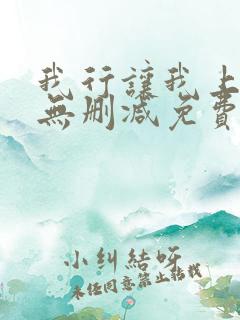 我行讓我上
無刪減免費
小糾結呀
未经同意禁止转载